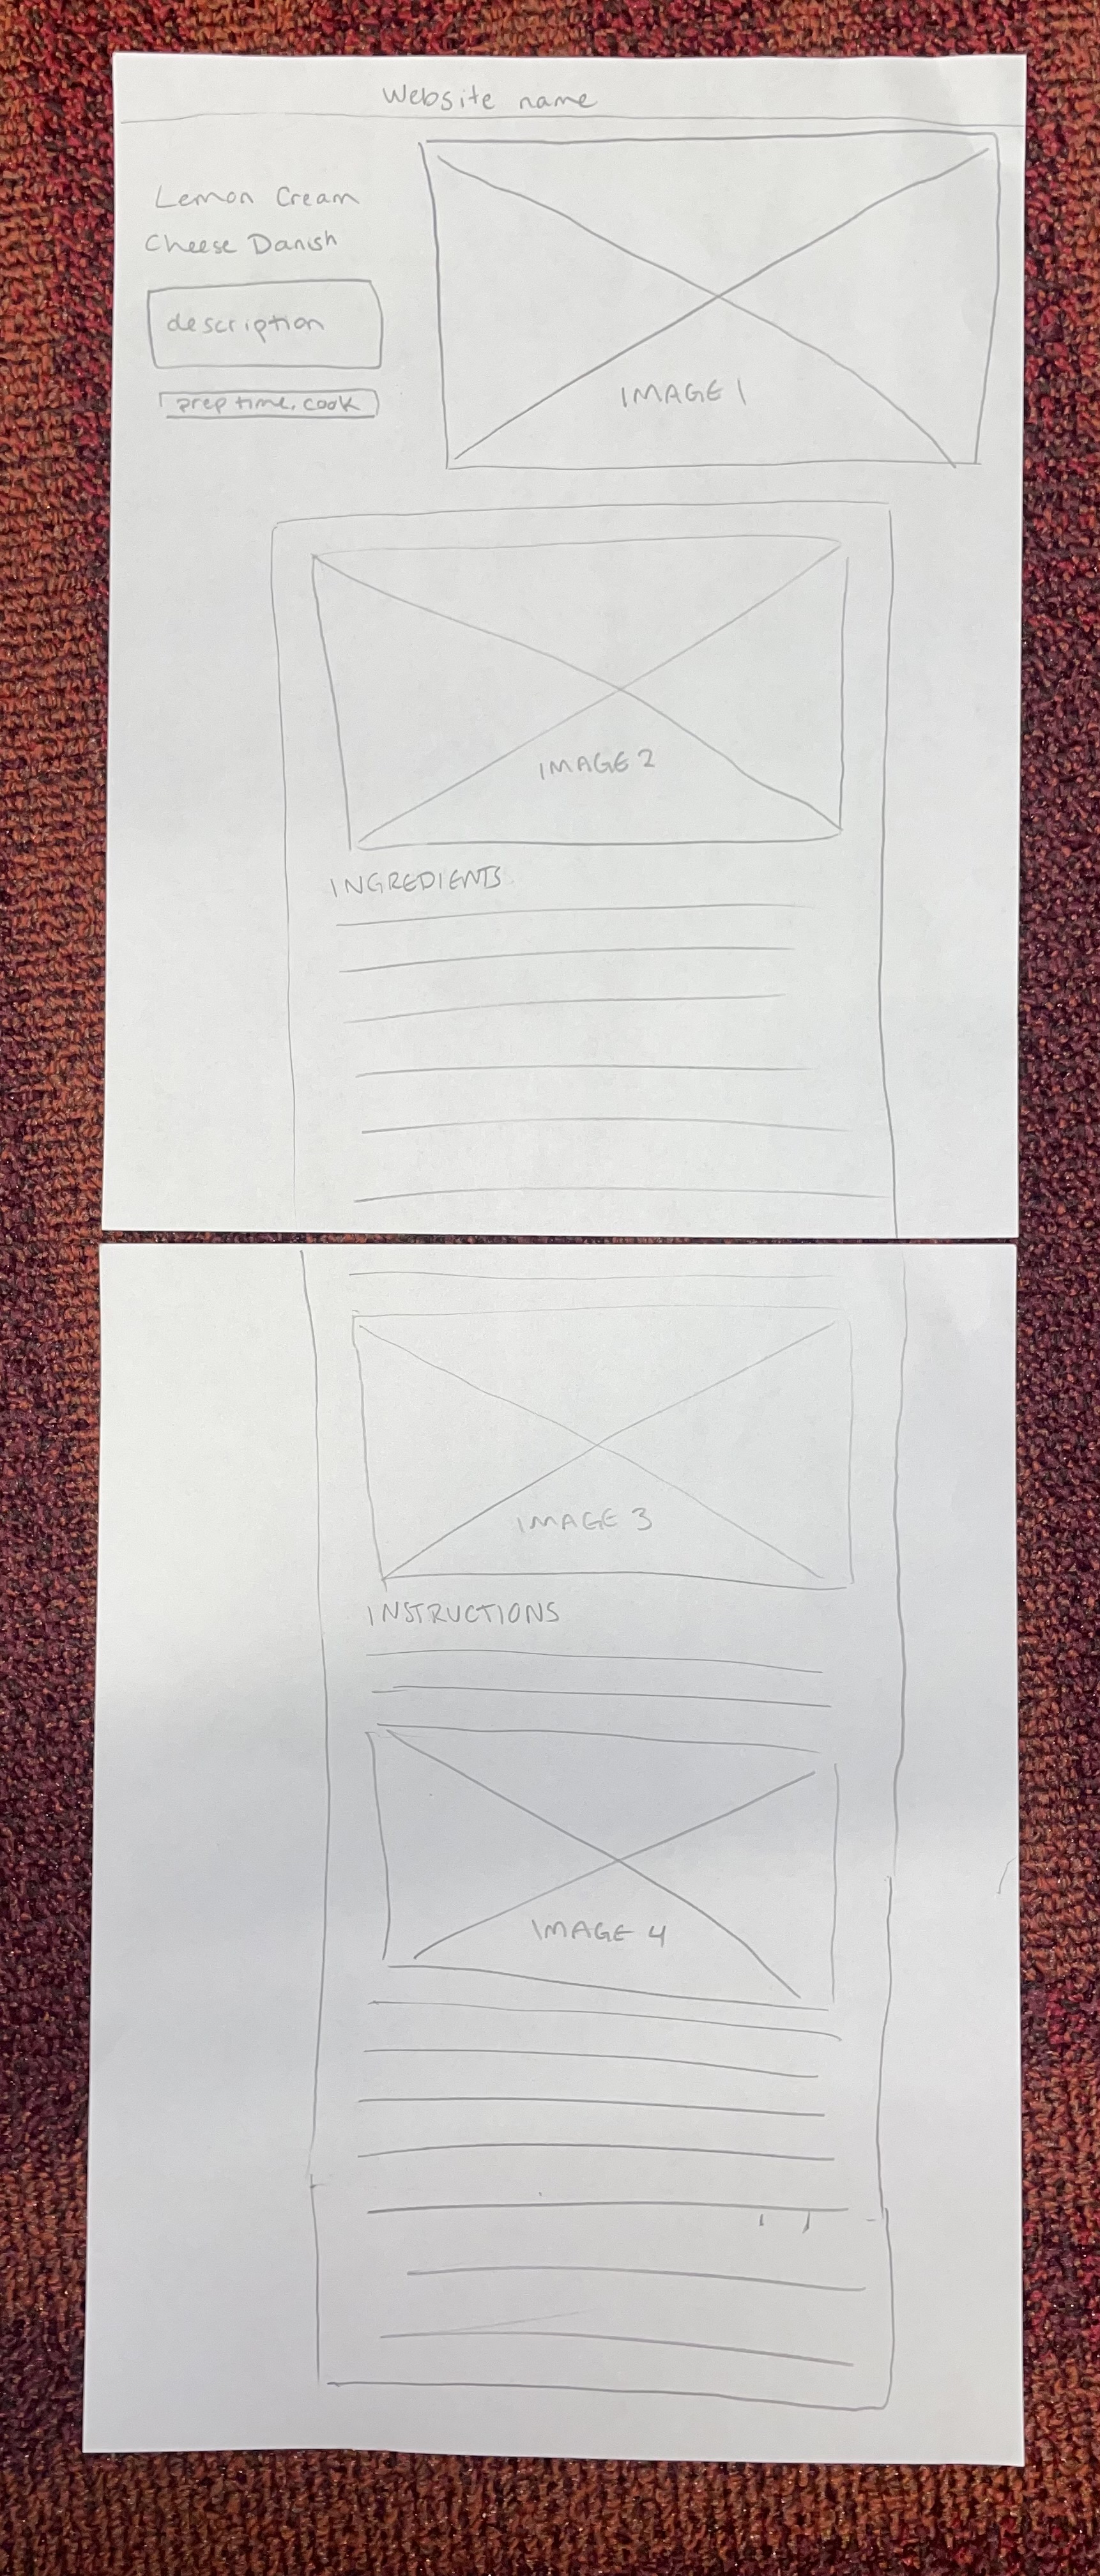 Website name
Lemon Cream
Cheese Danish
description
prep time, cook
IMAGE 1
IMAGE 2
INGREDIENTS
IMAGE 3
INSTRUCTIONS
IMAGE 4